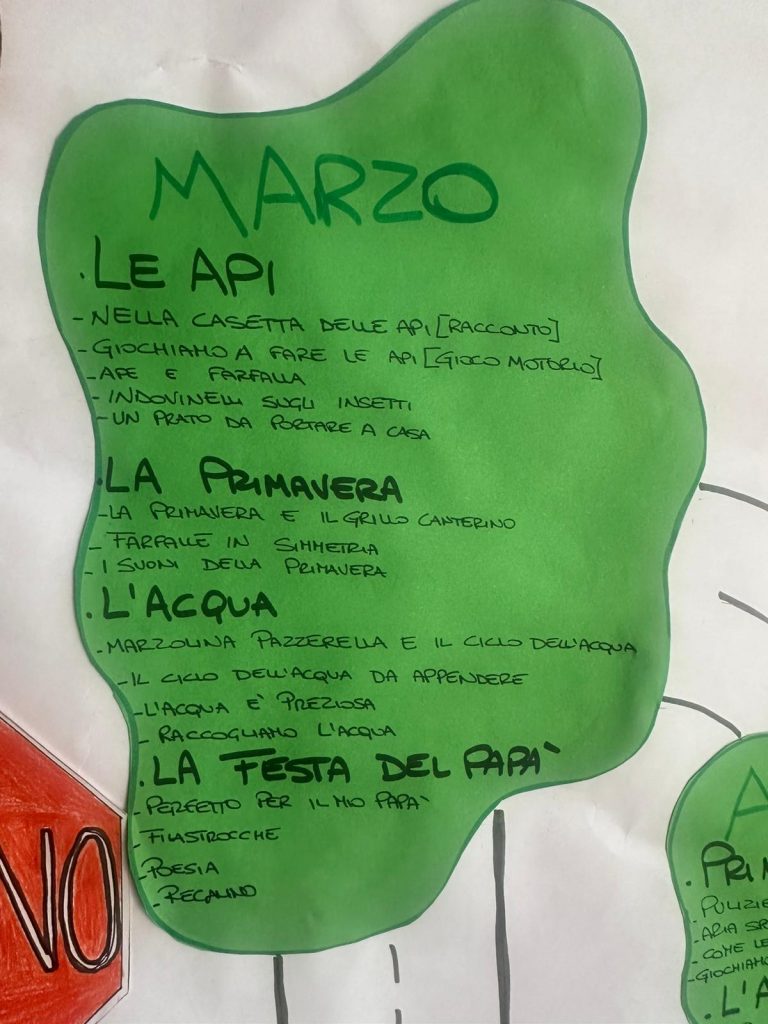 MARZO
. LE API
- NELLA CASETTA DELLE API [RACCONTO]
- GIOCHIAMO A FARE LE API [GIOCO MOTORIO]
- APE E FARFALLA
- INDOVINELLI SUGLI INSETTI
- UN PRATO DA PORTARE A CASA
. LA PRIMAVERA
- LA PRIMAVERA E IL GRILLO CANTERINO
- FARFALLE IN SIMMETRIA
- I SUONI DELLA PRIMAVERA
. L'ACQUA
- MARZOLINA PAZZERELLA E IL CICLO DELL'ACQUA
- IL CICLO DELL'ACQUA DA APPENDERE
- L'ACQUA E' PREZIOSA
- RACCOGLIAMO L'ACQUA
. LA FESTA DEL PAPA'
- PERFETTO PER IL MIO PAPA'
- FILASTROCCHE
- POESIA
- REGALINO
NO
A
. PRIM
- PULIZIE
- ARIA
- COME LE
- GIOCHIAMO
. L'A